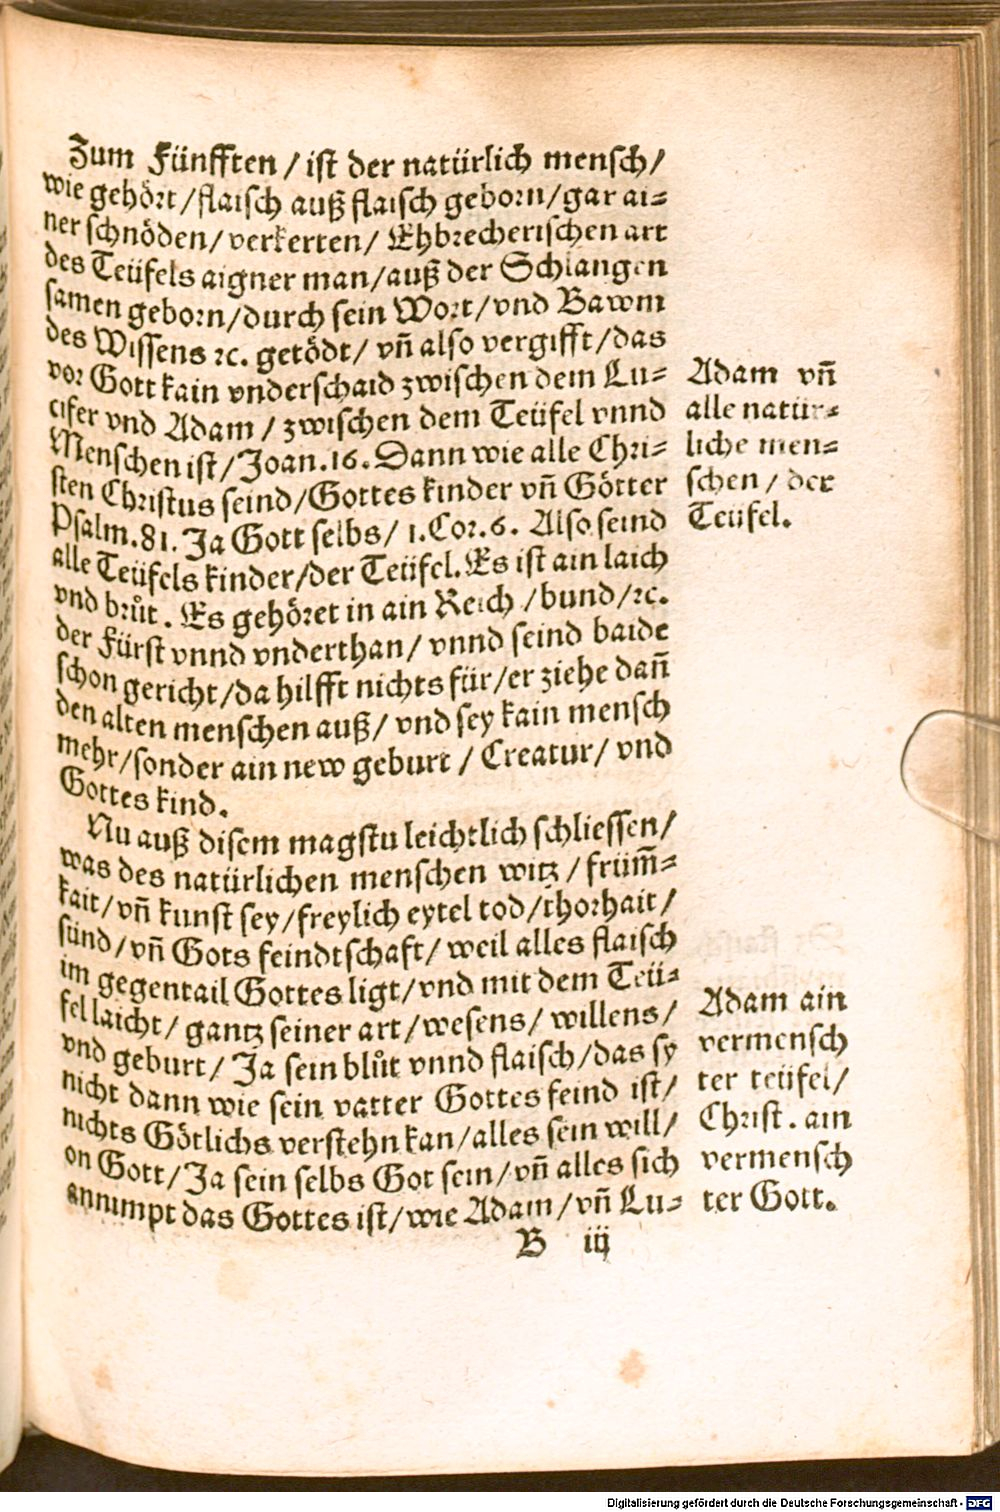 Zum Fünfften / ist der natürlich mensch /
wie gehört / flaisch auß flaisch geborn / gar ai⸗
ner schnöden / verkerten / Ehbrecherischen art
des Teüfels aigner man / auß der Schlangen
samen geborn / durch sein Wort / vnd Bawm
des Wissens ꝛc. getödt / vñ also vergifft / das
vor Gott kain vnderschaid zwischen dem Lu⸗
cifer vnd Adam / zwischen dem Teüfel vnnd
Menschen ist / Joan. 16. Dann wie alle Chri⸗
sten Christus seind / Gottes kinder vñ Götter
Psalm. 81. Ja Gott selbs / 1. Cor. 6. Also seind
alle Teüfels kinder / der Teüfel. Es ist ain laich
vnd brůt. Es gehöret in ain Reich / bund / ꝛc.
der Fürst vnnd vnderthan / vnnd seind baide
schon gericht / da hilfft nichts für / er ziehe dañ
den alten menschen auß / vnd sey kain mensch
mehr / sonder ain new geburt / Creatur / vnd
Gottes kind.
Adam vñ
alle natür⸗
liche men⸗
schen / der
Teüfel.
Nu auß disem magstu leichtlich schliessen /
was des natürlichen menschen witz / früm̃⸗
kait / vñ kunst sey / freylich eytel tod / thorhait /
sünd / vñ Gots feindtschaft / weil alles flaisch
im gegentail Gottes ligt / vnd mit dem Teü⸗
fel laicht / gantz seiner art / wesens / willens /
vnd geburt / Ja sein blůt vnnd flaisch / das sy
nicht dann wie sein vatter Gottes feind ist /
nichts Götlichs verstehn kan / alles sein will /
on Gott / Ja sein selbs Got sein / vñ alles sich
annimpt das Gottes ist / wie Adam / vñ Lu⸗
Adam ain
vermensch
ter teüfel /
Christ. ain
vermensch
ter Gott.
B iij
Digitalisierung gefördert durch die Deutsche Forschungsgemeinschaft - DFG